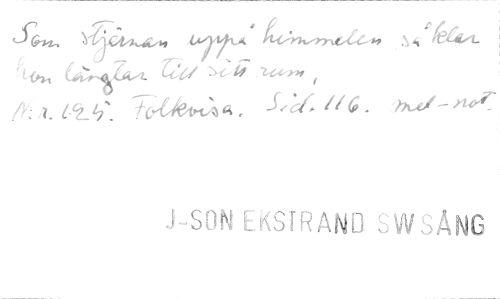 Som stjärnan uppå himmelen så klar
hon längtar till sitt rum,
N:r. 125. Folkvisa. Sid. 116. mel-not.
J-SON EKSTRAND SW SÅNG